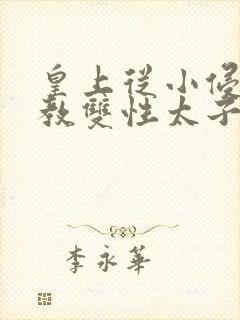 皇上從小
教雙性太子
李永華